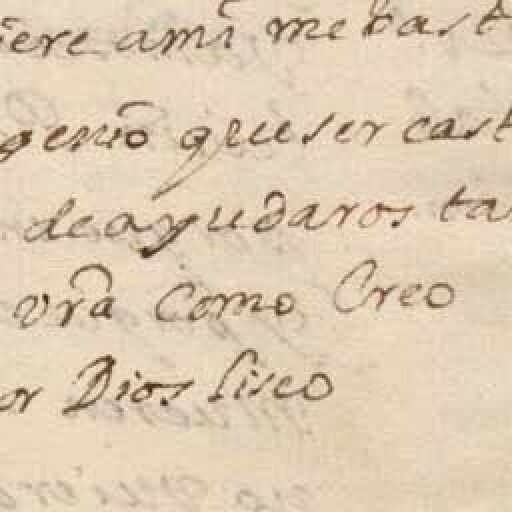 iere ami me bast
genio que ser cast
de ayudaros ta
vra como Creo
or Dios liseo